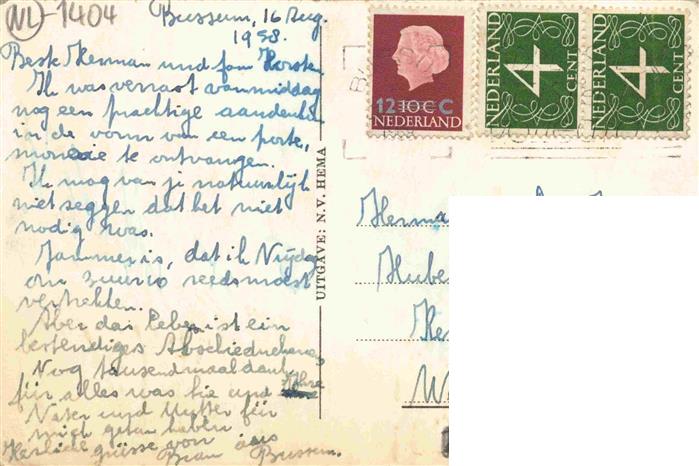 NL-1404
Bussum, 16 Aug.
1958.
Beste Herman und fam Horster
Ik was verrast vanmiddag
nog een prachtige aandenken
in de vorm van een porte,
monaie te ontvangen.
Ik mag van je natuurlijk
niet zeggen dat het niet
nodig was.
Jammer is, dat ik Vrijdag
om uur reeds moest
vertrekken.
Aber das Leben ist ein
bestendiges Abschiednehmen
Nog tausendmaal dank
für alles was Sie und Ihre
Vater und Mutter für
mich getan haben
Herzliche grüsse von
Bram aus Bussum.
UITGAVE: N.V. HEMA
12 10C C
NEDERLAND
NEDERLAND
4
CENT
NEDERLAND
4
CENT
Herma
Hube
W